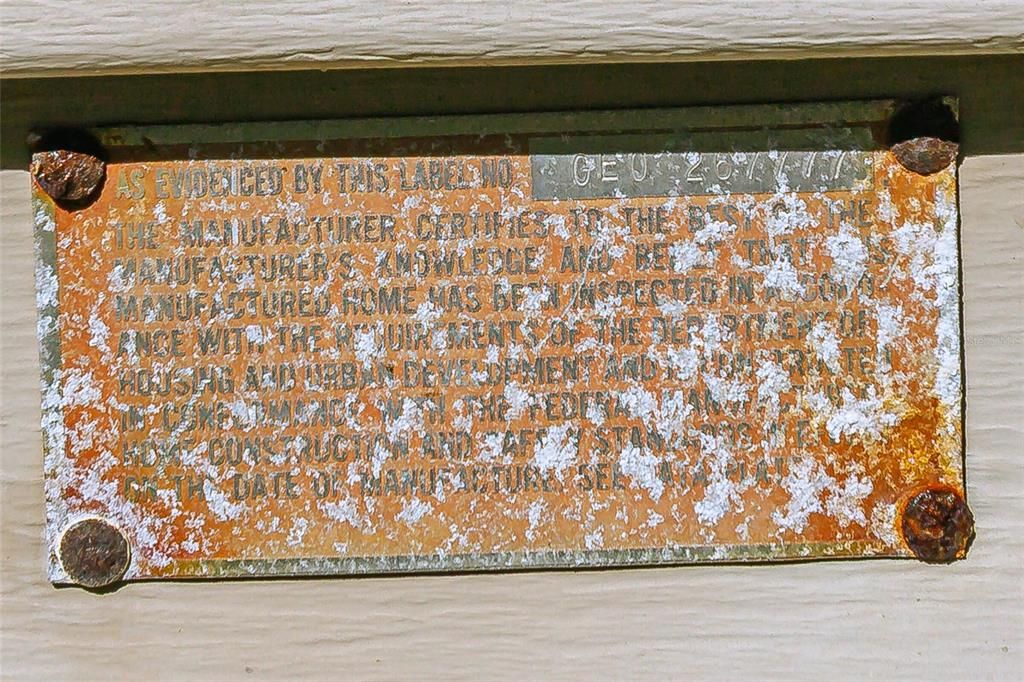 AS EVIDENCED BY THIS LABEL NO. GEO
THE MANUFACTURER CERTIFIES TO THE BEST OF THE
MANUFACTURER'S KNOWLEDGE AND BELIEF THAT THIS
MANUFACTURED HOME HAS BEEN INSPECTED IN ACCORD-
ANCE WITH THE REQUIREMENTS OF THE DEPARTMENT OF
HOUSING AND URBAN DEVELOPMENT AND
IN CONFORMANCE WITH THE FEDERAL MANUFACTURED
HOME CONSTRUCTION AND SAFETY STANDARDS IN EFFECT
ON THE DATE OF MANUFACTURE. SEE DATA PLATE.